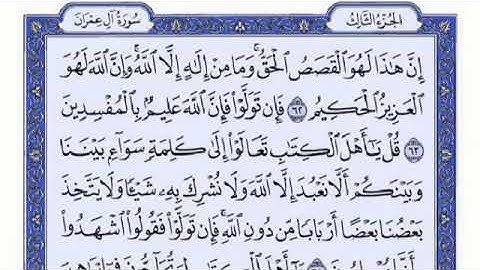 الجُزْءُ الثَّالِثُ
سُورَةُ آلِ عِمْرَانَ
إِنَّ هَٰذَا لَهُوَ ٱلْقَصَصُ ٱلْحَقُّ ۚ وَمَا مِنْ إِلَٰهٍ إِلَّا ٱللَّهُ ۚ وَإِنَّ ٱللَّهَ لَهُوَ
ٱلْعَزِيزُ ٱلْحَكِيمُ ٦٢ فَإِن تَوَلَّوْا۟ فَإِنَّ ٱللَّهَ عَلِيمٌۢ بِٱلْمُفْسِدِينَ
٦٣ قُلْ يَٰٓأَهْلَ ٱلْكِتَٰبِ تَعَالَوْا۟ إِلَىٰ كَلِمَةٍ سَوَآءٍۭ بَيْنَنَا
وَبَيْنَكُمْ أَلَّا نَعْبُدَ إِلَّا ٱللَّهَ وَلَا نُشْرِكَ بِهِۦ شَيْـًٔا وَلَا يَتَّخِذَ
بَعْضُنَا بَعْضًا أَرْبَابًا مِّن دُونِ ٱللَّهِ ۚ فَإِن تَوَلَّوْا۟ فَقُولُوا۟ ٱشْهَدُوا۟